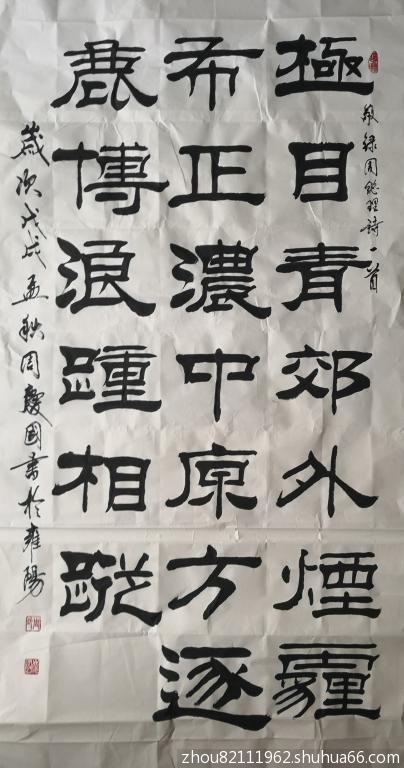 敬録周總理詩一首
極目青郊外煙霾
布正濃中原方逐
鹿博浪踵相蹤
歲次戊戌孟秋周慶國書於雍陽
zhou82111962.shuhua66.com